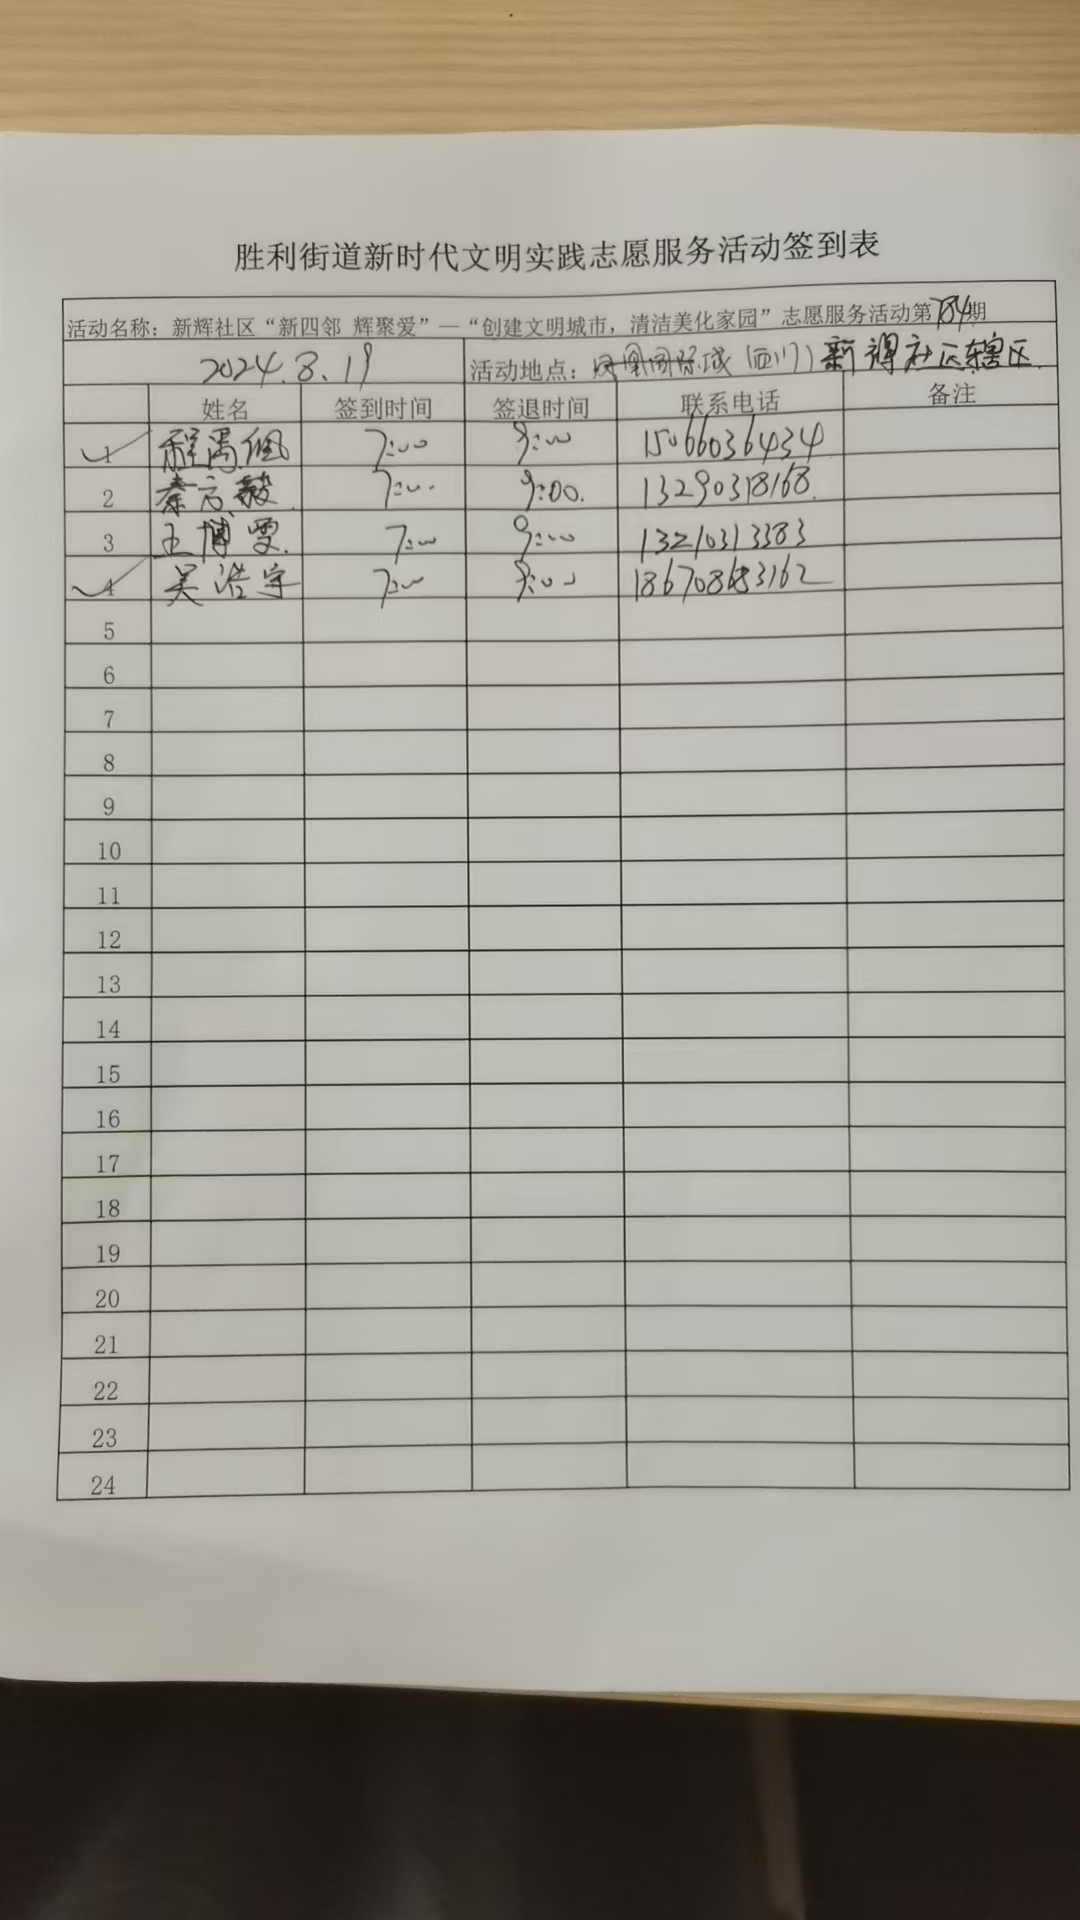 胜利街道新时代文明实践志愿服务活动签到表
活动名称：新辉社区“新四邻 辉聚爱”—“创建文明城市，清洁美化家园”志愿服务活动第784期
2024.8.19 活动地点：凤凰国际城（西门）新 社区辖区
姓名 签到时间 签退时间 联系电话 备注
1 程 佩 7:00 9:00 15066036434
2 秦 毅 7:00 9:00 13290318168
3 王博雯 7:00 9:00 13210313383
4 吴浩宇 7:00 9:00 186708683162
5
6
7
8
9
10
11
12
13
14
15
16
17
18
19
20
21
22
23
24